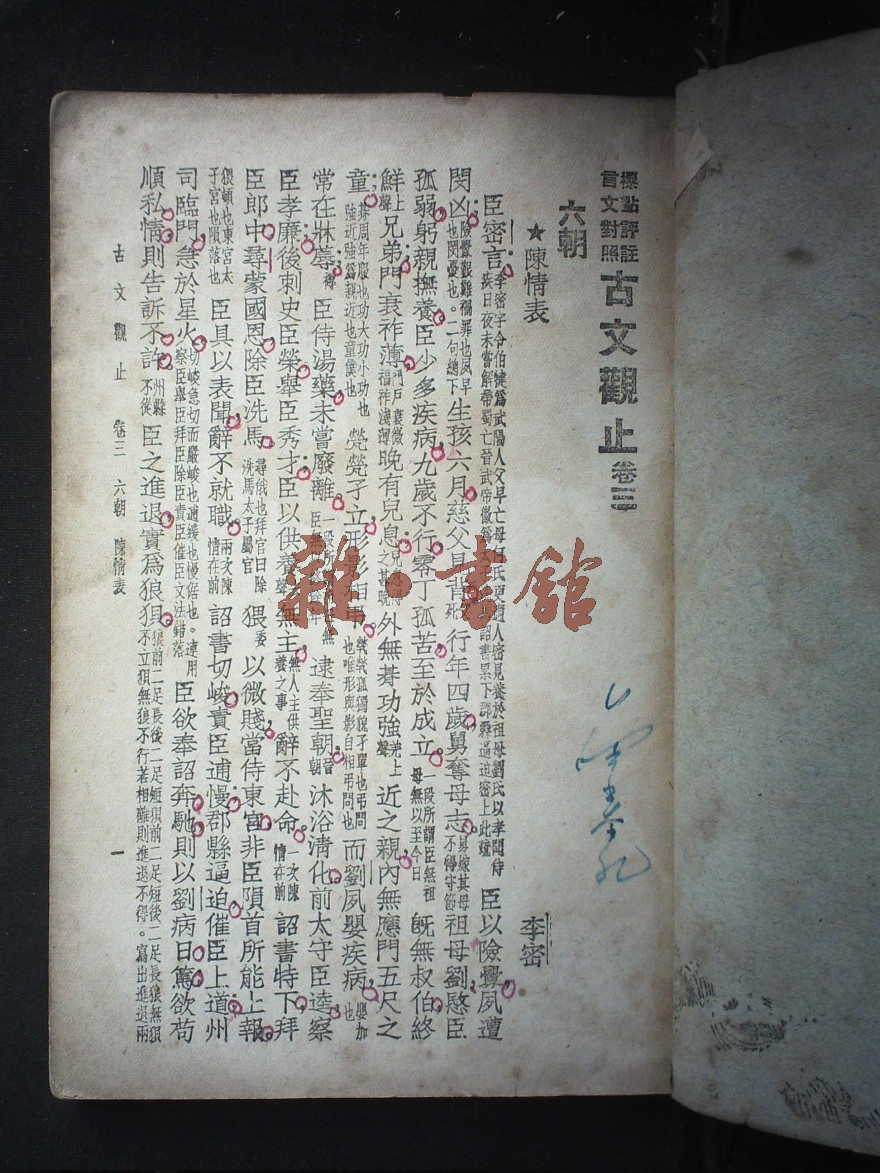 標點評註
言文對照
古文觀止 卷三
六朝
★陳情表
李密
臣密言 李密字令伯犍為武陽人父早亡母 氏更適人密見養於祖母劉氏以孝聞侍疾日夜未嘗解帶蜀亡晉武帝徵為 詔書累下郡縣逼迫密上此疏 臣以險釁夙遭
閔凶 險釁艱難禍罪也夙早也閔憂也。二句總下 生孩六月慈父見背 死 行年四歲舅奪母志 舅嫁其母不得守節 祖母劉愍臣
孤弱躬親撫養臣少多疾病九歲不行零丁孤苦至於成立 一段所謂臣無祖母無以至今日 旣無叔伯終
鮮 上聲 兄弟門衰祚薄 門戶衰微福祚淺薄 晚有兒息 外無朞功強 上聲 近之親內無應門五尺之
童 朞周年服也功大功小功也強近強為親近也童僕也 煢煢孑立形影相弔 煢煢孤獨貌孑單也弔問也唯形與影自相弔問也 而劉夙嬰疾病 嬰加也
常在牀蓐 褥 臣侍湯藥未嘗廢離 一段所 逮奉聖朝 晉朝 沐浴清化前太守臣逵察
臣孝廉後刺史臣榮舉臣秀才臣以供養 聲 無主 無人主供養之事 辭不赴命 一次陳情在前 詔書特下拜
臣郎中尋蒙國恩除臣洗馬 尋俄也拜官曰除洗馬太子屬官 猥 委 以微賤當侍東宮非臣隕首所能上報
猥頓也東宮太子宮也隕落也 臣具以表聞辭不就職 兩次陳情在前 詔書切峻責臣逋慢郡縣逼迫催臣上道州
司臨門急於星火 切峻急切而嚴峻也逋緩也慢倨也。連用察臣舉臣拜臣除臣責臣催臣文法錯落 臣欲奉詔奔馳則以劉病日篤欲苟
順私情則告訴不許 州縣不從 臣之進退實為狼狽 狼前二足長後二足短狽前二足短後二足長狼無狽不立狽無狼不行若相離則進退不得。寫出進退兩
古文觀止 卷三 六朝 陳情表 一
雜·書館